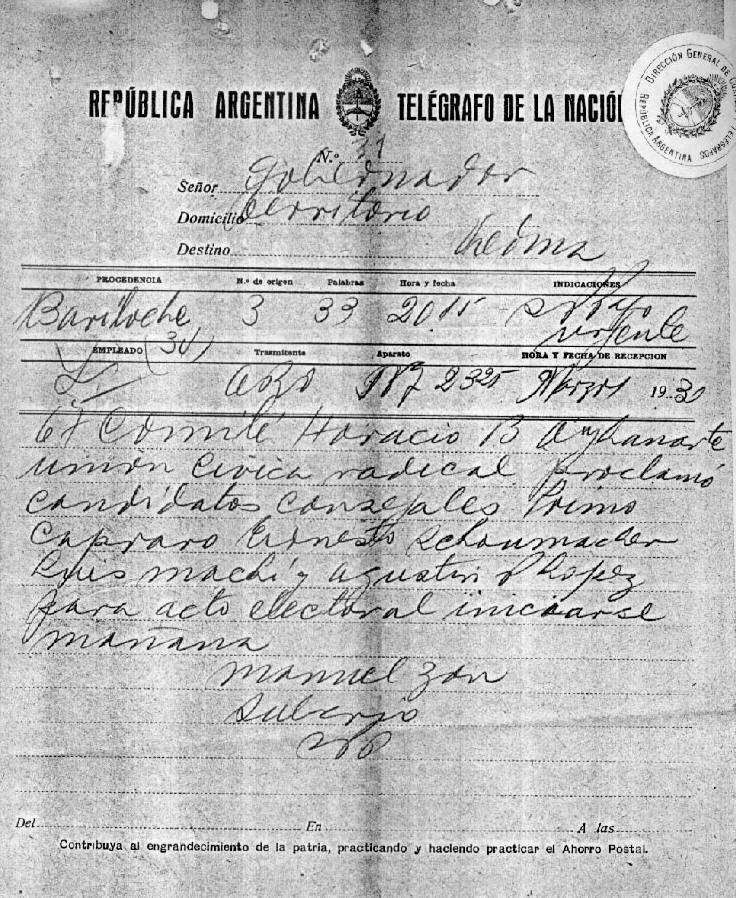 REPÚBLICA ARGENTINA TELÉGRAFO DE LA NACIÓN
DIRECCIÓN GENERAL DE CORREOS TELEGRAFOS
REPÚBLICA ARGENTINA
N.º 31
Señor Gobernador
Domicilio territorio
Destino Viedma
PROCEDENCIA N.º de origen Palabras Hora y fecha INDICACIONES
Bariloche 3 33 2015
urgente
EMPLEADO (30) Trasmitente Aparato HORA Y FECHA DE RECEPCION
2325 Marzo 1 1930
67 Comité Horacio B Oyhanarte
unión civica radical proclamó
candidatos consejales Primo
Capraro Ernesto Schoumacher
Luis Machi y Agustin P Lopez
para acto electoral iniciarse
mañana
Manuel Zan
Del En A las
Contribuya al engrandecimiento de la patria, practicando y haciendo practicar el Ahorro Postal.